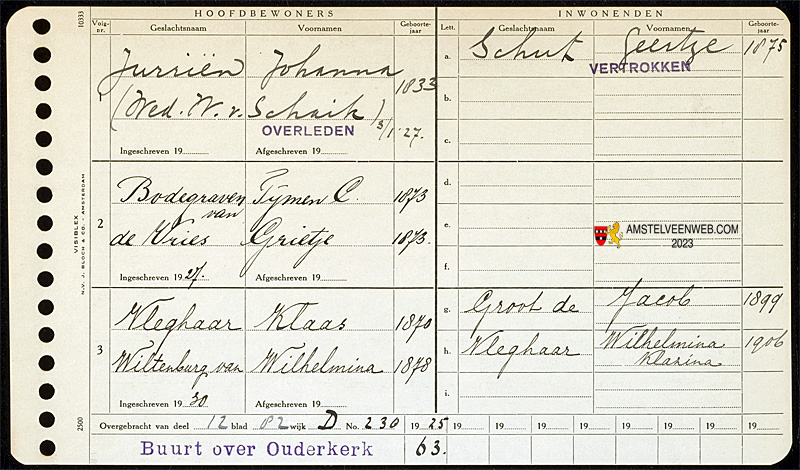 HOOFDBEWONERS INWONENDEN
Volg-nr. Geslachtsnaam Voornamen Geboorte-jaar Lett. Geslachtsnaam Voornamen Geboorte-jaar
1 Jurriën Johanna 1833
(Wed. W. v. Schaik)
OVERLEDEN 3/1 '27.
Ingeschreven 19 Afgeschreven 19
a. Schut Geertje 1875
VERTROKKEN
b.
c.
2 Bodegraven van Tijmen C. 1873
de Vries Grietje 1873.
Ingeschreven 1927. Afgeschreven 19
d.
e.
f.
AMSTELVEENWEB.COM
2023
3 Kleghaar Klaas 1870
Wiltenburg van Wilhelmina 1878
Ingeschreven 1930 Afgeschreven 19
g. Groot de Jacob 1899
h. Kleghaar Wilhelmina Klazina 1906
i.
Overgebracht van deel 12 blad 82 wijk D No. 230 1925 19 19 19 19 19 19 19 19
Buurt over Ouderkerk 63.
10333
VISIBLEX
N.V. J. BLOCH & CO. AMSTERDAM
2500